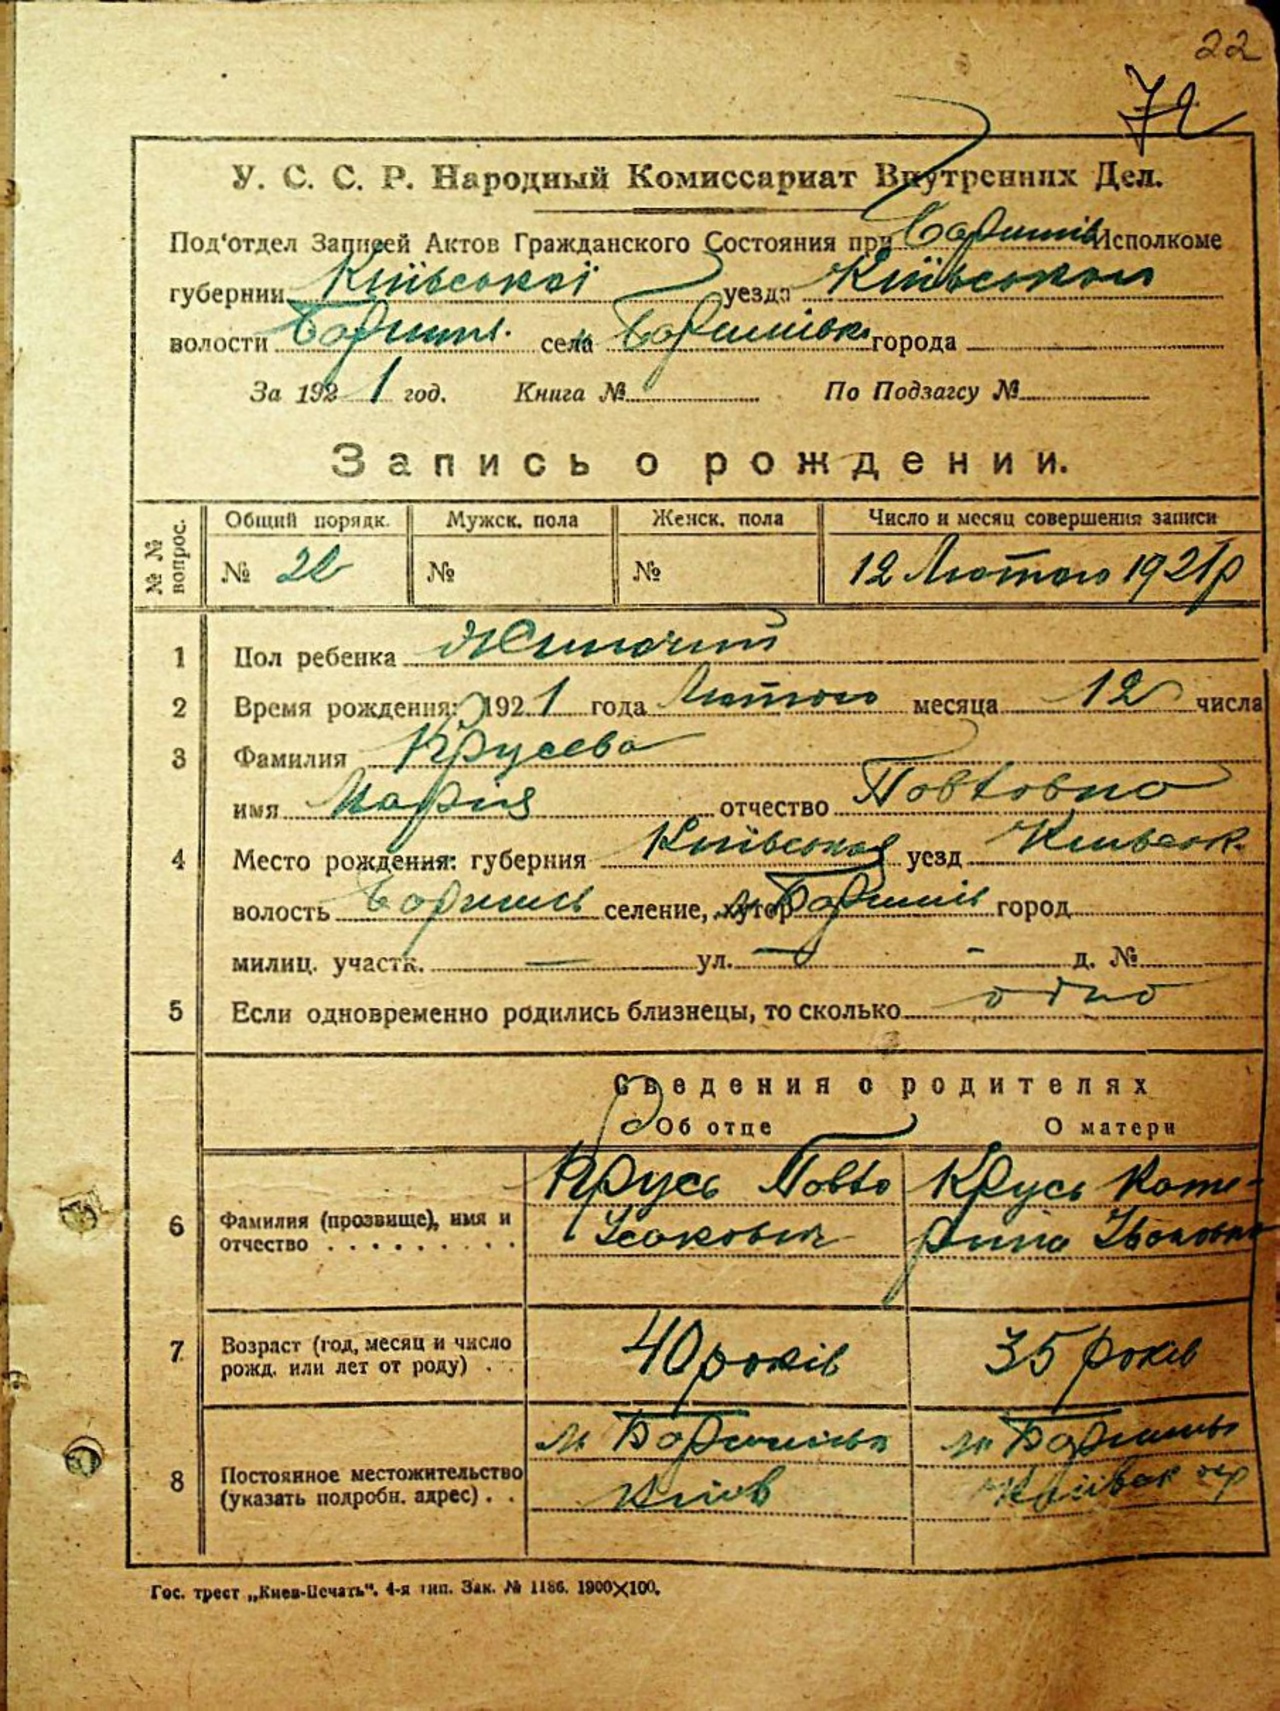 22
72
У. С. С. Р. Народный Комиссариат Внутренних Дел.
Под'отдел Записей Актов Гражданского Состояния при Баришів Исполкоме
губернии Київської уезда Київського
волости Бариш. села Баришівк. города
За 1921 год. Книга № По Подзагсу №
Запись о рождении.
№ № вопрос. Общий порядк. Мужск. пола Женск. пола Число и месяц совершения записи
№ 22 № № 12 Лютого 1921р
1 Пол ребенка Жиночий
2 Время рождения: 1921 года Лютого месяца 12 числа
3 Фамилия Крусева
имя Марія отчество Павловна
4 Место рождения: губерния Київська уезд Київськ.
волость Баришів селение, хутор м. Баришів город
милиц. участк. — ул. — - д. №
5 Если одновременно родились близнецы, то сколько одно
Сведения о родителях
Об отце О матери
6 Фамилия (прозвище), имя и отчество . . . . . . . . . Крусь Павло Крусь Кате-
Ісакович рина Івановна
7 Возраст (год, месяц и число рожд. или лет от роду) . . 40 років 35 років
8 Постоянное местожительство (указать подробн. адрес) . . м. Баришівка м. Баришів
Київ
Гос. трест „Киев-Печать“. 4-я тип. Зак. № 1186. 1900×100.